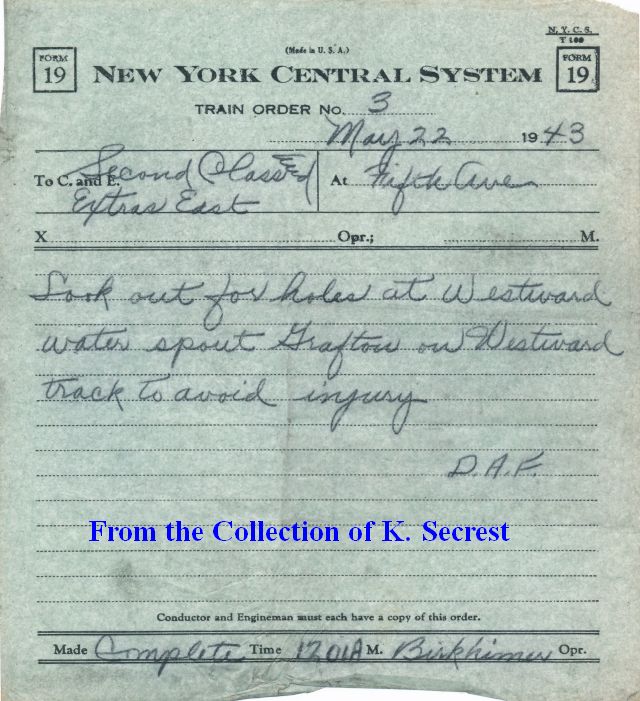 N. Y. C. S.
T 100
(Made in U. S. A.)
FORM 19 NEW YORK CENTRAL SYSTEM FORM 19
TRAIN ORDER No. 3
May 22 1943
To C. and E. Second Class Ed At Fifth Ave
Extras East
X Opr.; M.
Look out for holes at Westward
water spout Grafton on Westward
track to avoid injury
D.A.F.
From the Collection of K. Secrest
Conductor and Engineman must each have a copy of this order.
Made Complete Time 1201A M. Birkhimer Opr.